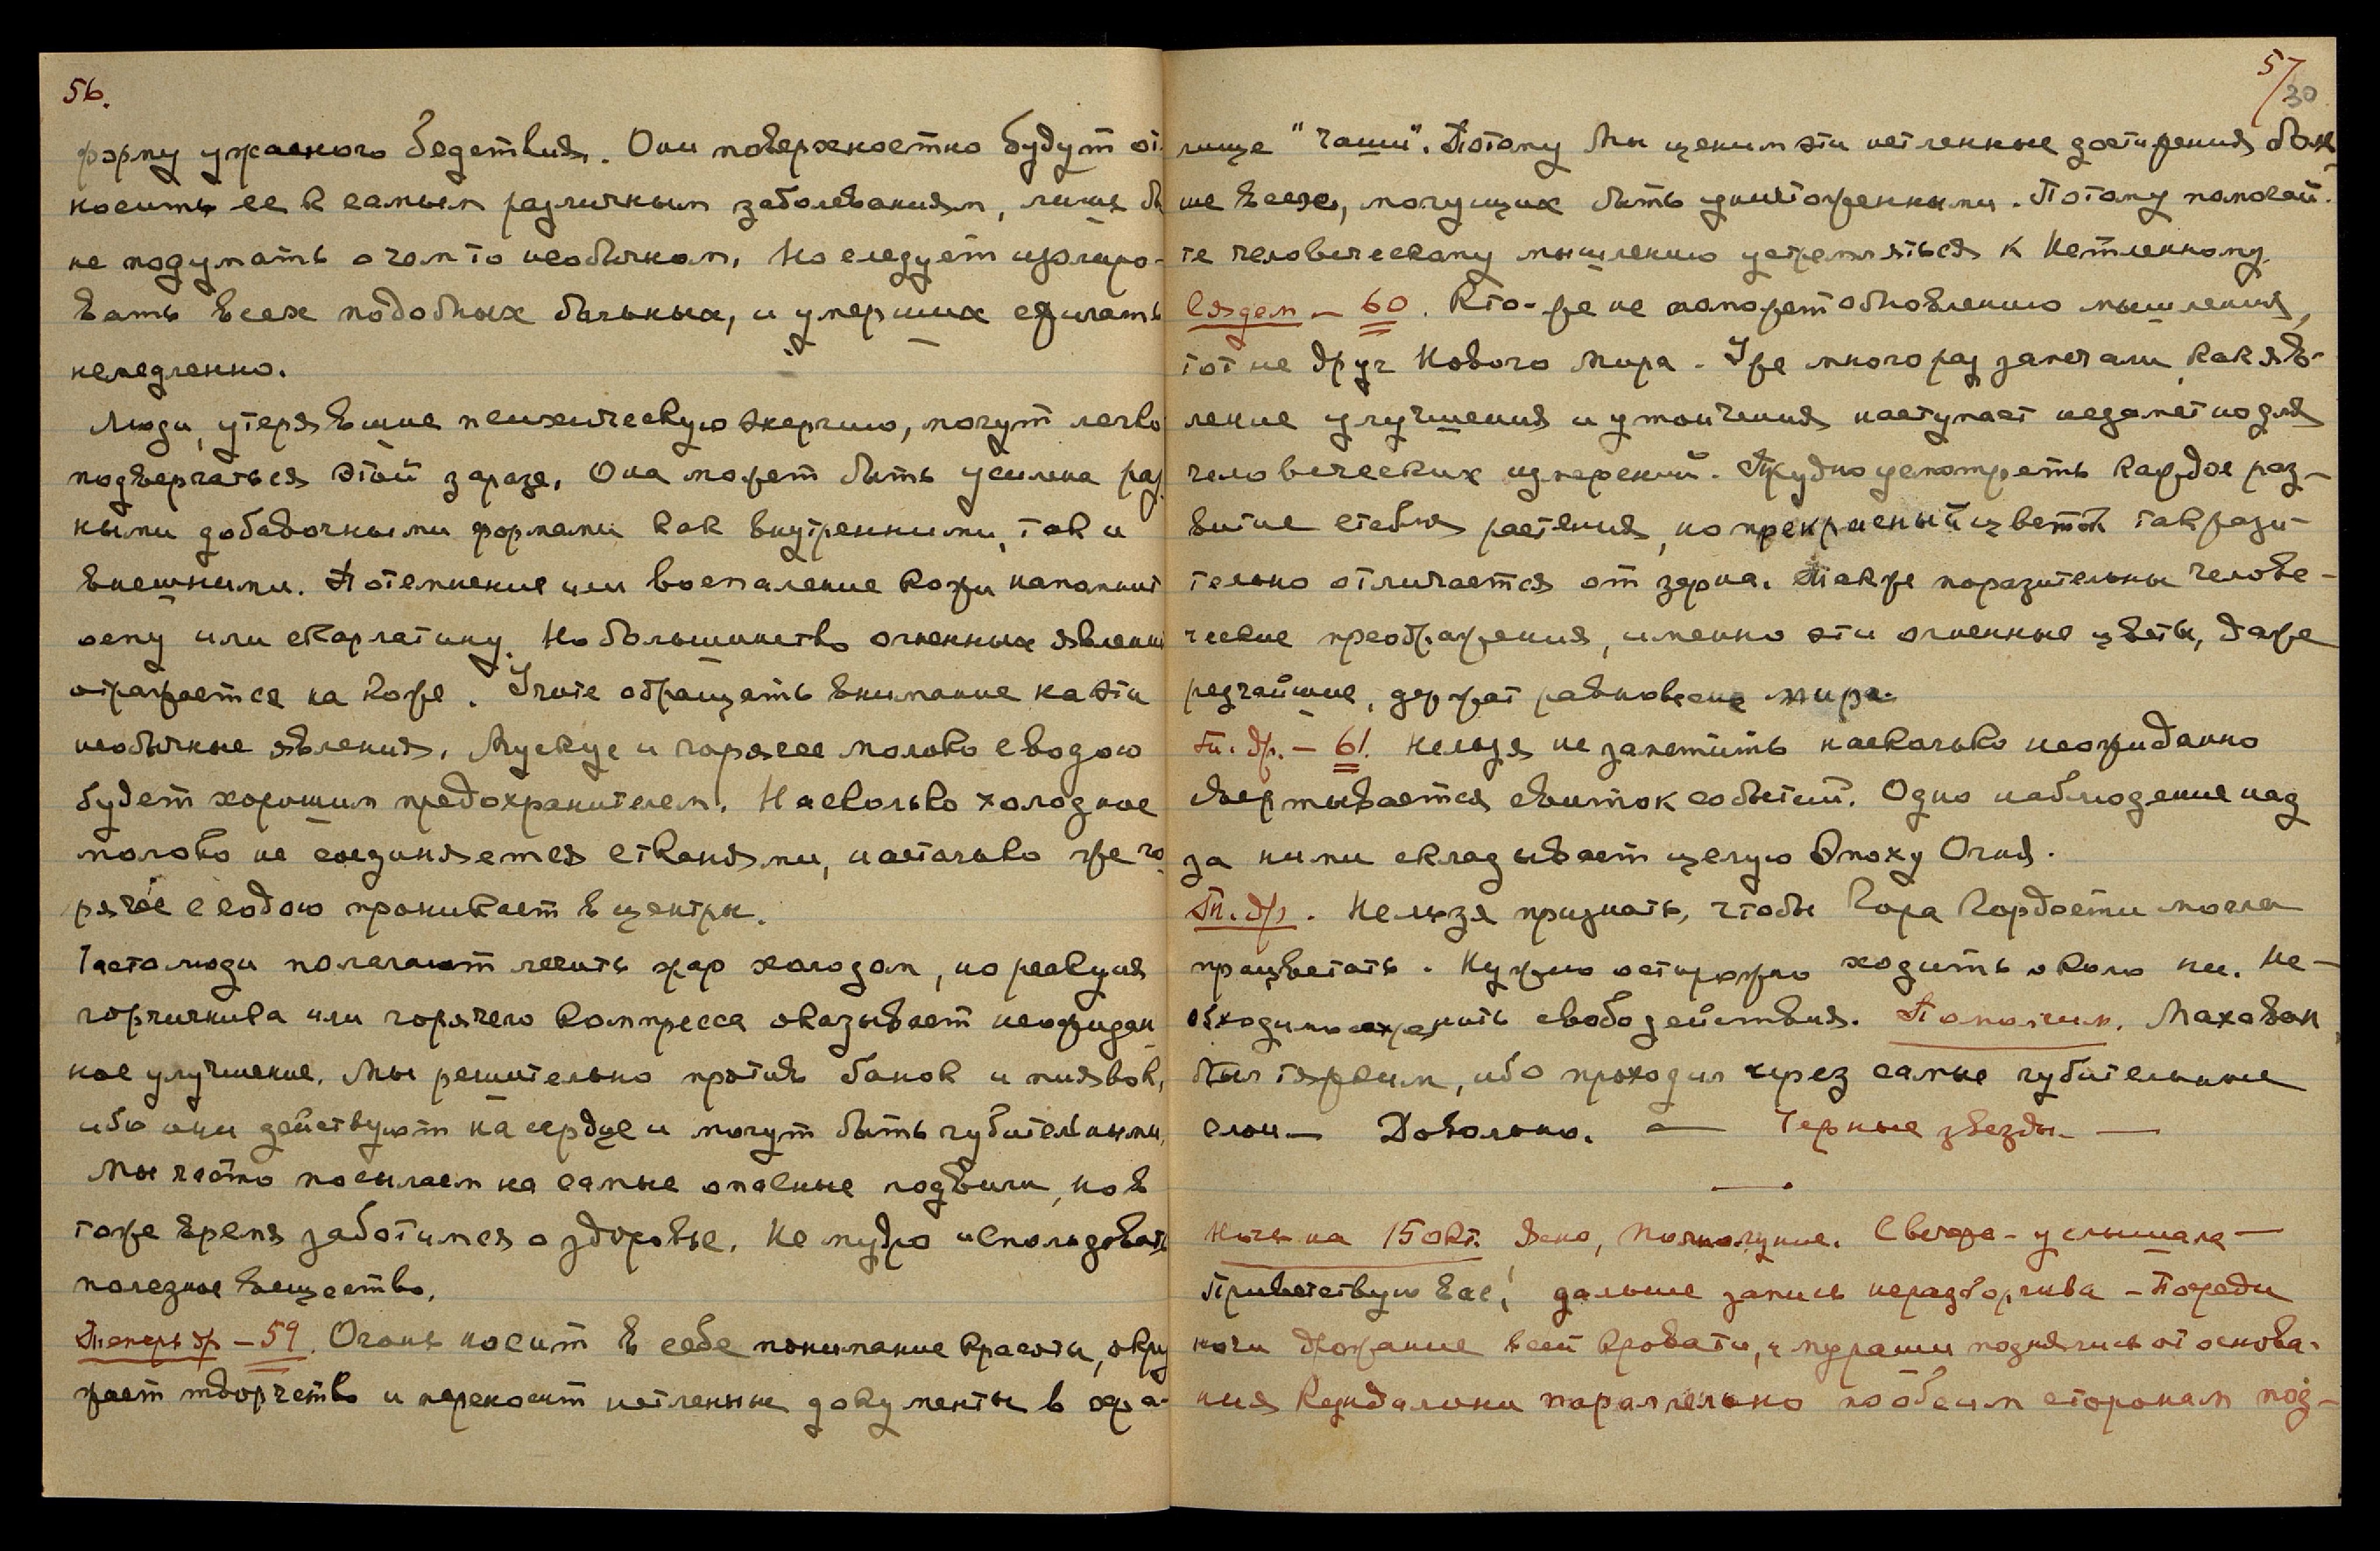 56.
форму ужасного бедствия. Они поверхностно будут от
носить ее к самым различным заболеваниям, лишь бы
не подумать о чем то необычном. Но следует изолиро-
вать всех подобных больных, и умерших сжигать
немедленно.
Люди, утерявшие психическую энергию, могут легко
подвергаться этой заразе. Она может быть усилена раз
ными добавочными формами как внутренними, так и
внешними. Потемнение или воспаление кожи напомнит
оспу или скарлатину. Но большинство огненных явлений
отражается на коже. Учите обращать внимание на эти
необычные явления. Мускус и горячее молоко с содою
будет хорошим предохранителем. Насколько холодное
молоко не соединяется с тканями, настолько же го
рячее с содою проникает в центры.
Часто люди полагают лечить жар холодом, но реакция
горчичника или горячего компресса оказывает неожидан
ное улучшение. Мы решительно против банок и пиявок,
ибо они действуют на сердце и могут быть губительными.
Мы часто посылаем на самые опасные подвиги, но в
тоже время заботимся о здоровье. Не мудро использовать
полезное вещество.
Теперь др. - 59. Огонь носит в себе понимание красоты, окру
жает творчество и переносит нетленные документы в хра-
57/30
лище "чаши". Потому Мы ценим эти нетленные достижения боль
ше всего, могущих быть уничтоженными. Потому помогай-
те человеческому мышлению устремляться к Нетленному.
Сядем - 60. Кто-же не поможет обновлению мышления,
тот не друг Нового Мира. Уже много раз замечали, как яв-
ление улучшения и утончения наступает недаметно для
человеческих измерений. Трудно усмотреть каждое раз-
витие стебля растения, но прекрасный цветок так рази-
тельно отличается от зерна. Также поразительны челове-
ческие преображения, именно эти огненные цветы, даже
редчайшие, держат равновесие мира.
Тп. др. - 61. Нельзя не заметить насколько неожиданно
свертывается свиток событий. Одно наблюдение над
за ними складывает целую Эпоху Огня.
Тп. др. Нельзя признать, чтобы Гора Гордости могла
процветать. Нужно осторожно ходить около ни. Не-
обходимо охранить свобо действия. Помолчим. Махаван
был тяжким, ибо проходил через самые губительные
слои - Довольно. — Черные звезды. —
Ночь на 15 окт. Ясно, Полнолуние. С вечера - услышала -
Приветствую вас! дальше запись неразборчива - Посреди
ночи дрожание всей кровати, и мураши поднялись от основа-
ния Кундалини параллельно по обеим сторонам поз-